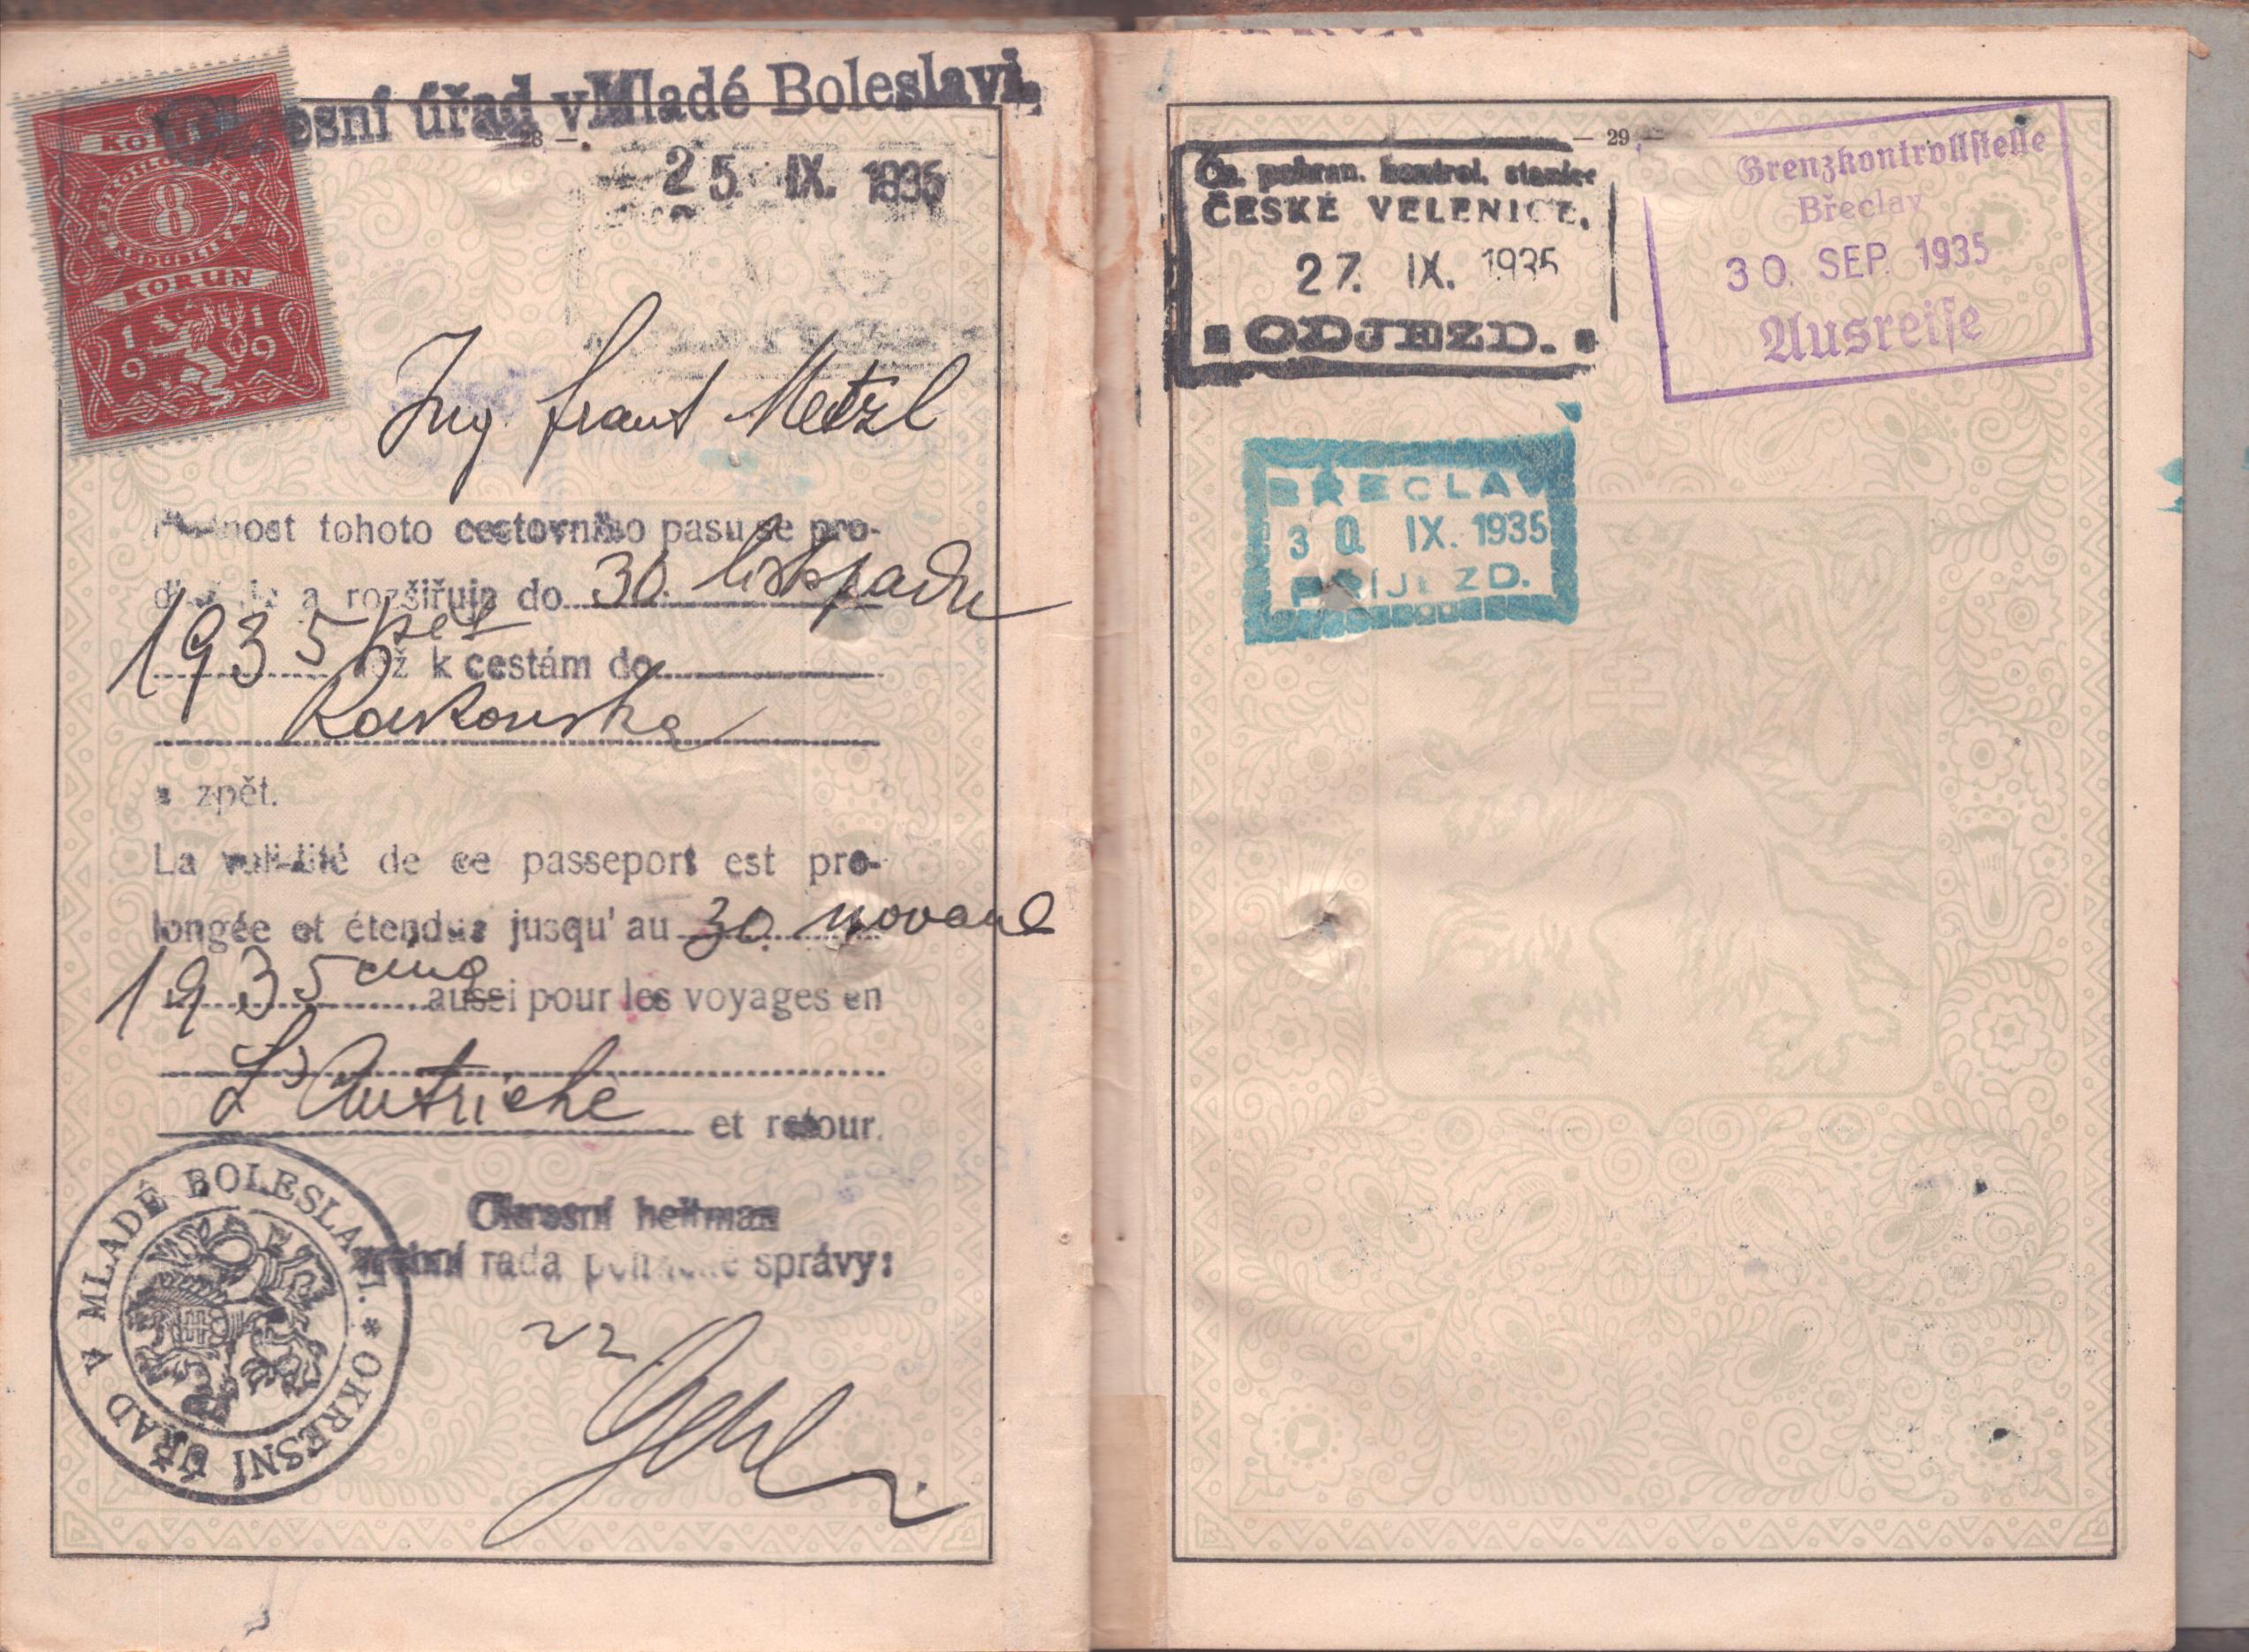 Okresní úřad v Mladé Boleslavi,
— 28 —
25. IX. 1935
KO
8
KORUN
1919
Ing. Frant Metzl
Platnost tohoto cestovního pasu se pro-
dlužuje a rozšiřuje do 30. listopadu
1935 pět
též k cestám do
Rakouska
a zpět.
La validité de ce passeport est pro-
longée et étendue jusqu'au 30.
1935 cinq
aussi pour les voyages en
L'Autriche
et retour.
Okresní hejtman
vrchní rada politické správy:
OKRESNÍ ÚŘAD V MLADÉ BOLESLAVI. *
— 29 —
Čs. pohran. kontrol. stanice
ČESKÉ VELENICE.
27. IX. 1935
ODJEZD.
Grenzkontrollstelle
Břeclav
30. SEP. 1935
Ausreise
BŘECLAV
30. IX. 1935
PŘÍJEZD.